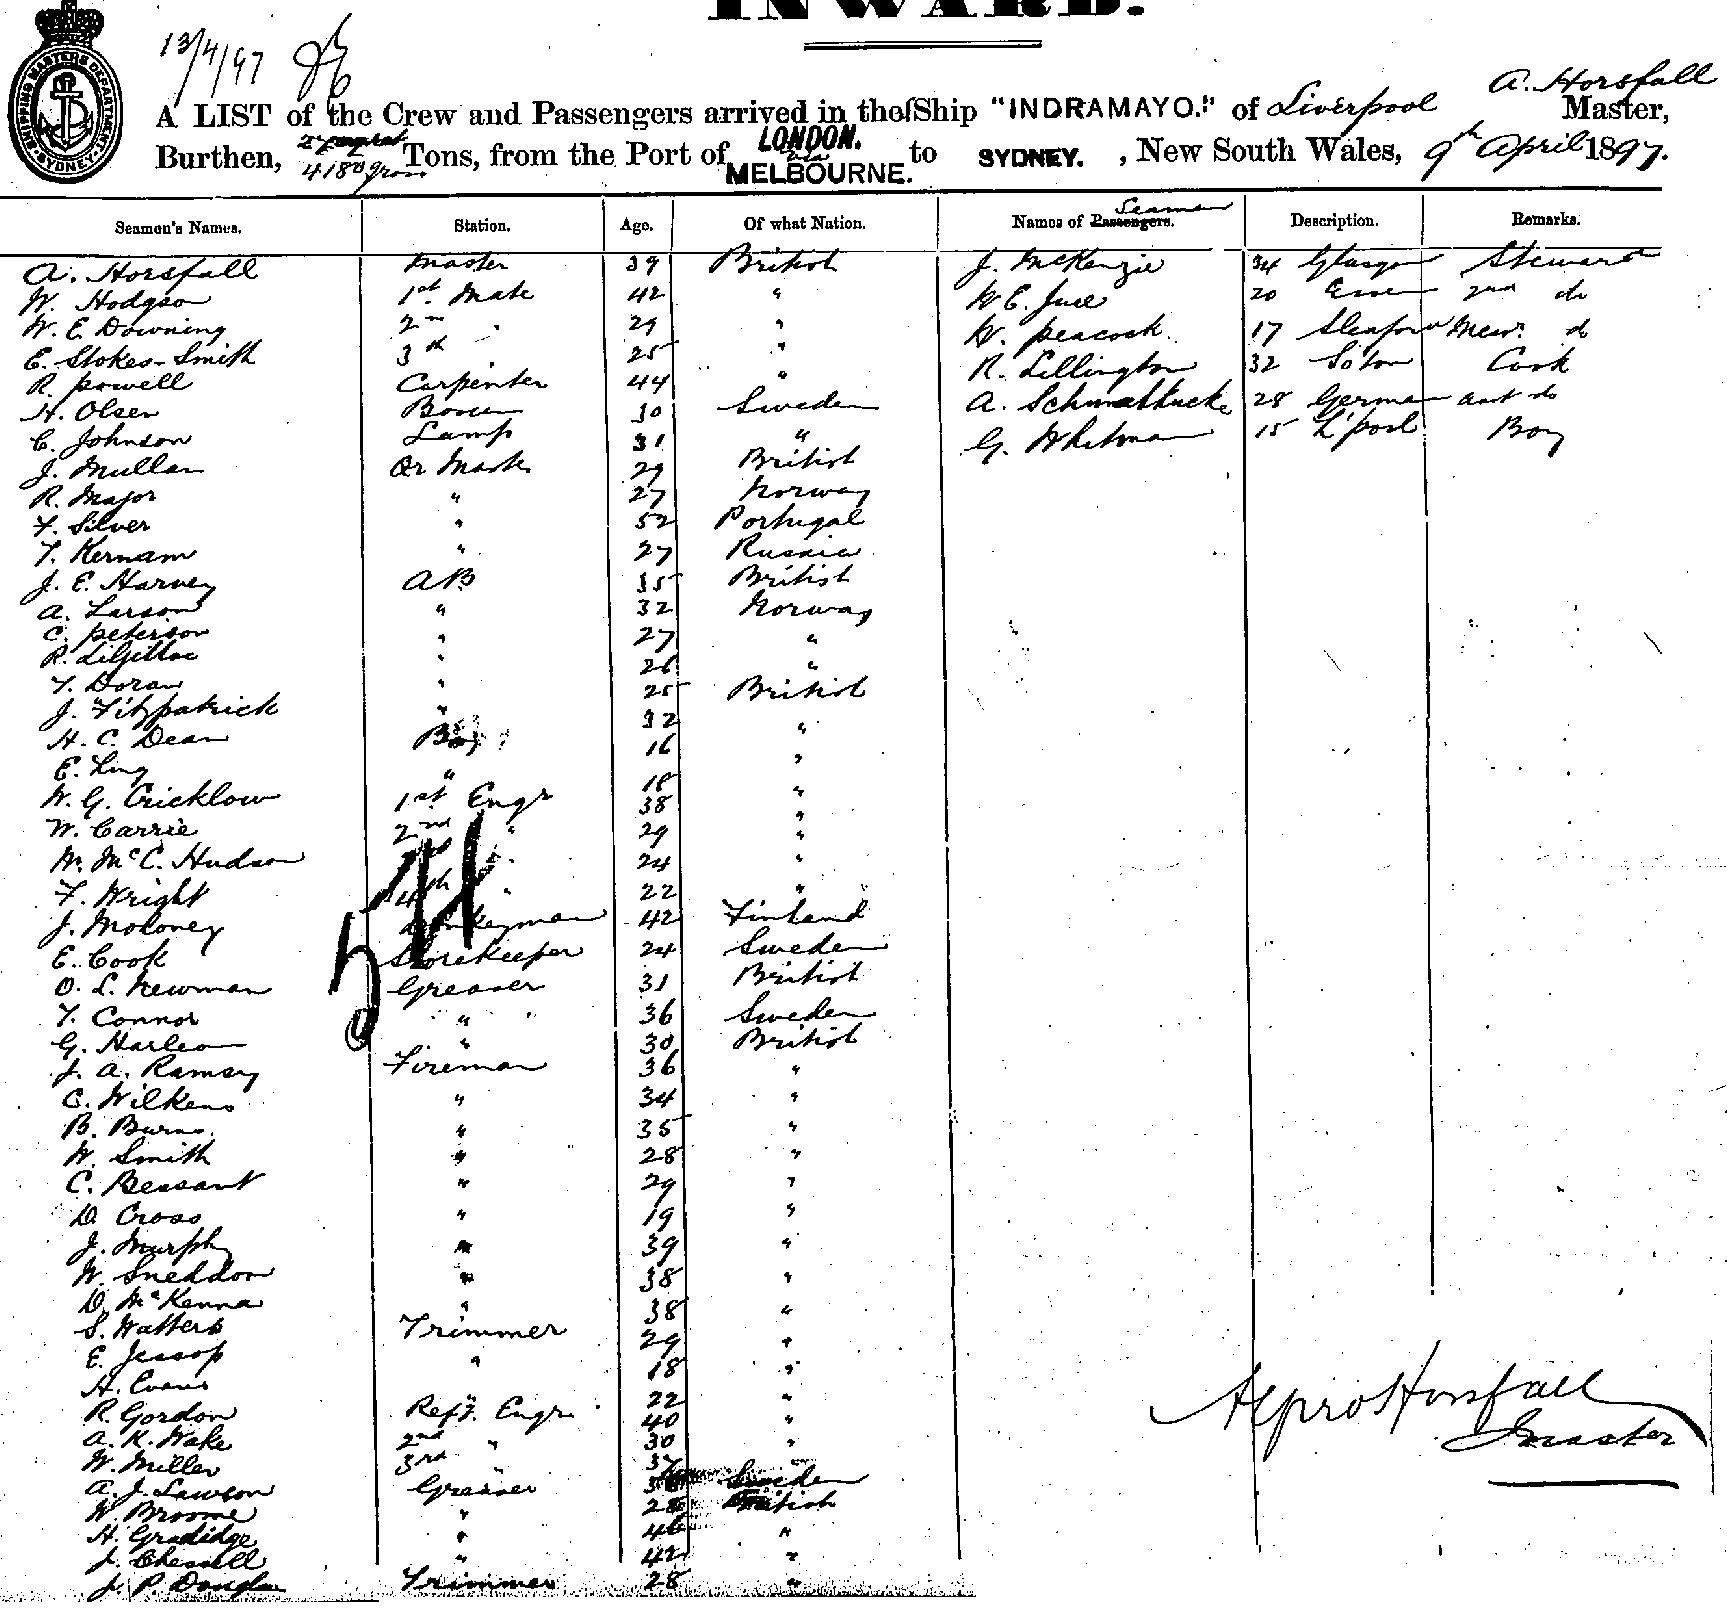 INWARD.
13/4/97
SHIPPING MASTERS DEPARTMENT SYDNEY
A. Horsfall
A LIST of the Crew and Passengers arrived in the Ship "INDRAMAYO." of Liverpool Master,
Burthen, 4180 gross Tons, from the Port of LONDON. via MELBOURNE. to SYDNEY. , New South Wales, 9th April 1897.
Seamen's Names. Station. Age. Of what Nation. Names of Passengers. Seamen Description. Remarks.
A. Horsfall Master 39 British J. McKenzie 34 Glasgow Steward
W. Hodgson 1st Mate 42 " W E. Juce 20 2nd do
W. E. Downing 2nd " 29 " W. Peacock 17 Sleaford Messr. do
E. Stokes-Smith 3rd 25 " R. Lillington 32 Soton Cook
R. Powell Carpenter 44 " A. Schmattucke 28 German asst do
H. Olsen Bosun 30 Sweden G. Whitman 15 L'pool Boy
C. Johnson Lamps 31 "
J. Mullan Qr Master 29 British
R. Major " 27 Norway
F. Silver " 52 Portugal
T. Kernam " 27 Russia
J. E. Harvey AB 35 British
A. Larson " 32 Norway
C. Peterson " 27 "
R. " 26 "
T. Doran " 25 British
J. Fitzpatrick " 32 "
H. C. Dean Boy 16 "
E. Ling " 18 "
W. G. Cricklow 1st Engr 38 "
W. Carrie 2nd " 29 "
W. McC. Hudson 3rd " 24 "
F. Wright 4th " 22 "
J. Moloney Donkeyman 42 Finland
E. Cook Storekeeper 24 Sweden
O. L. Newman Greaser 31 British
T. Connor " 36 Sweden
G. Harleon " 30 British
J. A. Ramsey Fireman 36 "
C. Wilkens " 34 "
B. Burns " 35 "
W. Smith " 28 "
C. Bessant " 29 "
D. Cross " 19 "
J. Murphy " 39 "
W. Sneddon " 38 "
D. McKenna " 38 "
S. Watters Trimmer 29 "
E. Jessop " 18 "
H. Evans " 22 "
R. Gordon Refg. Engr. 40 "
A. K. Wake 2nd " 30 "
W. Miller 3rd " 37
A. J. Lawson Greaser Sweden
W. Broome " 28 British
H. Gradidge " 46 "
J. Chessell " 42 "
J. P. Douglas Trimmer 28 "
Horsfall
Master